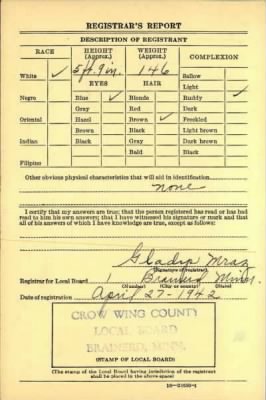 REGISTRAR'S REPORT
DESCRIPTION OF REGISTRANT
RACE HEIGHT (Approx.) WEIGHT (Approx.) COMPLEXION
White ✓ 5 ft. 9 in. 146 Sallow
EYES HAIR Light
Negro Blue ✓ Blonde Ruddy ✓
Gray Red Dark
Oriental Hazel Brown ✓ Freckled
Brown Black Light brown
Indian Black Gray Dark brown
Bald Black
Filipino
Other obvious physical characteristics that will aid in identification
none
I certify that my answers are true; that the person registered has read or has had
read to him his own answers; that I have witnessed his signature or mark and that
all of his answers of which I have knowledge are true, except as follows:
Gladys Mraz
(Signature of registrar)
Registrar for Local Board 1 Brainerd Minn.
(Number) (City or county) (State)
Date of registration April 27-1942
CROW WING COUNTY
LOCAL BOARD
BRAINERD, MINN.
(STAMP OF LOCAL BOARD)
(The stamp of the Local Board having jurisdiction of the registrant
shall be placed in the above space)